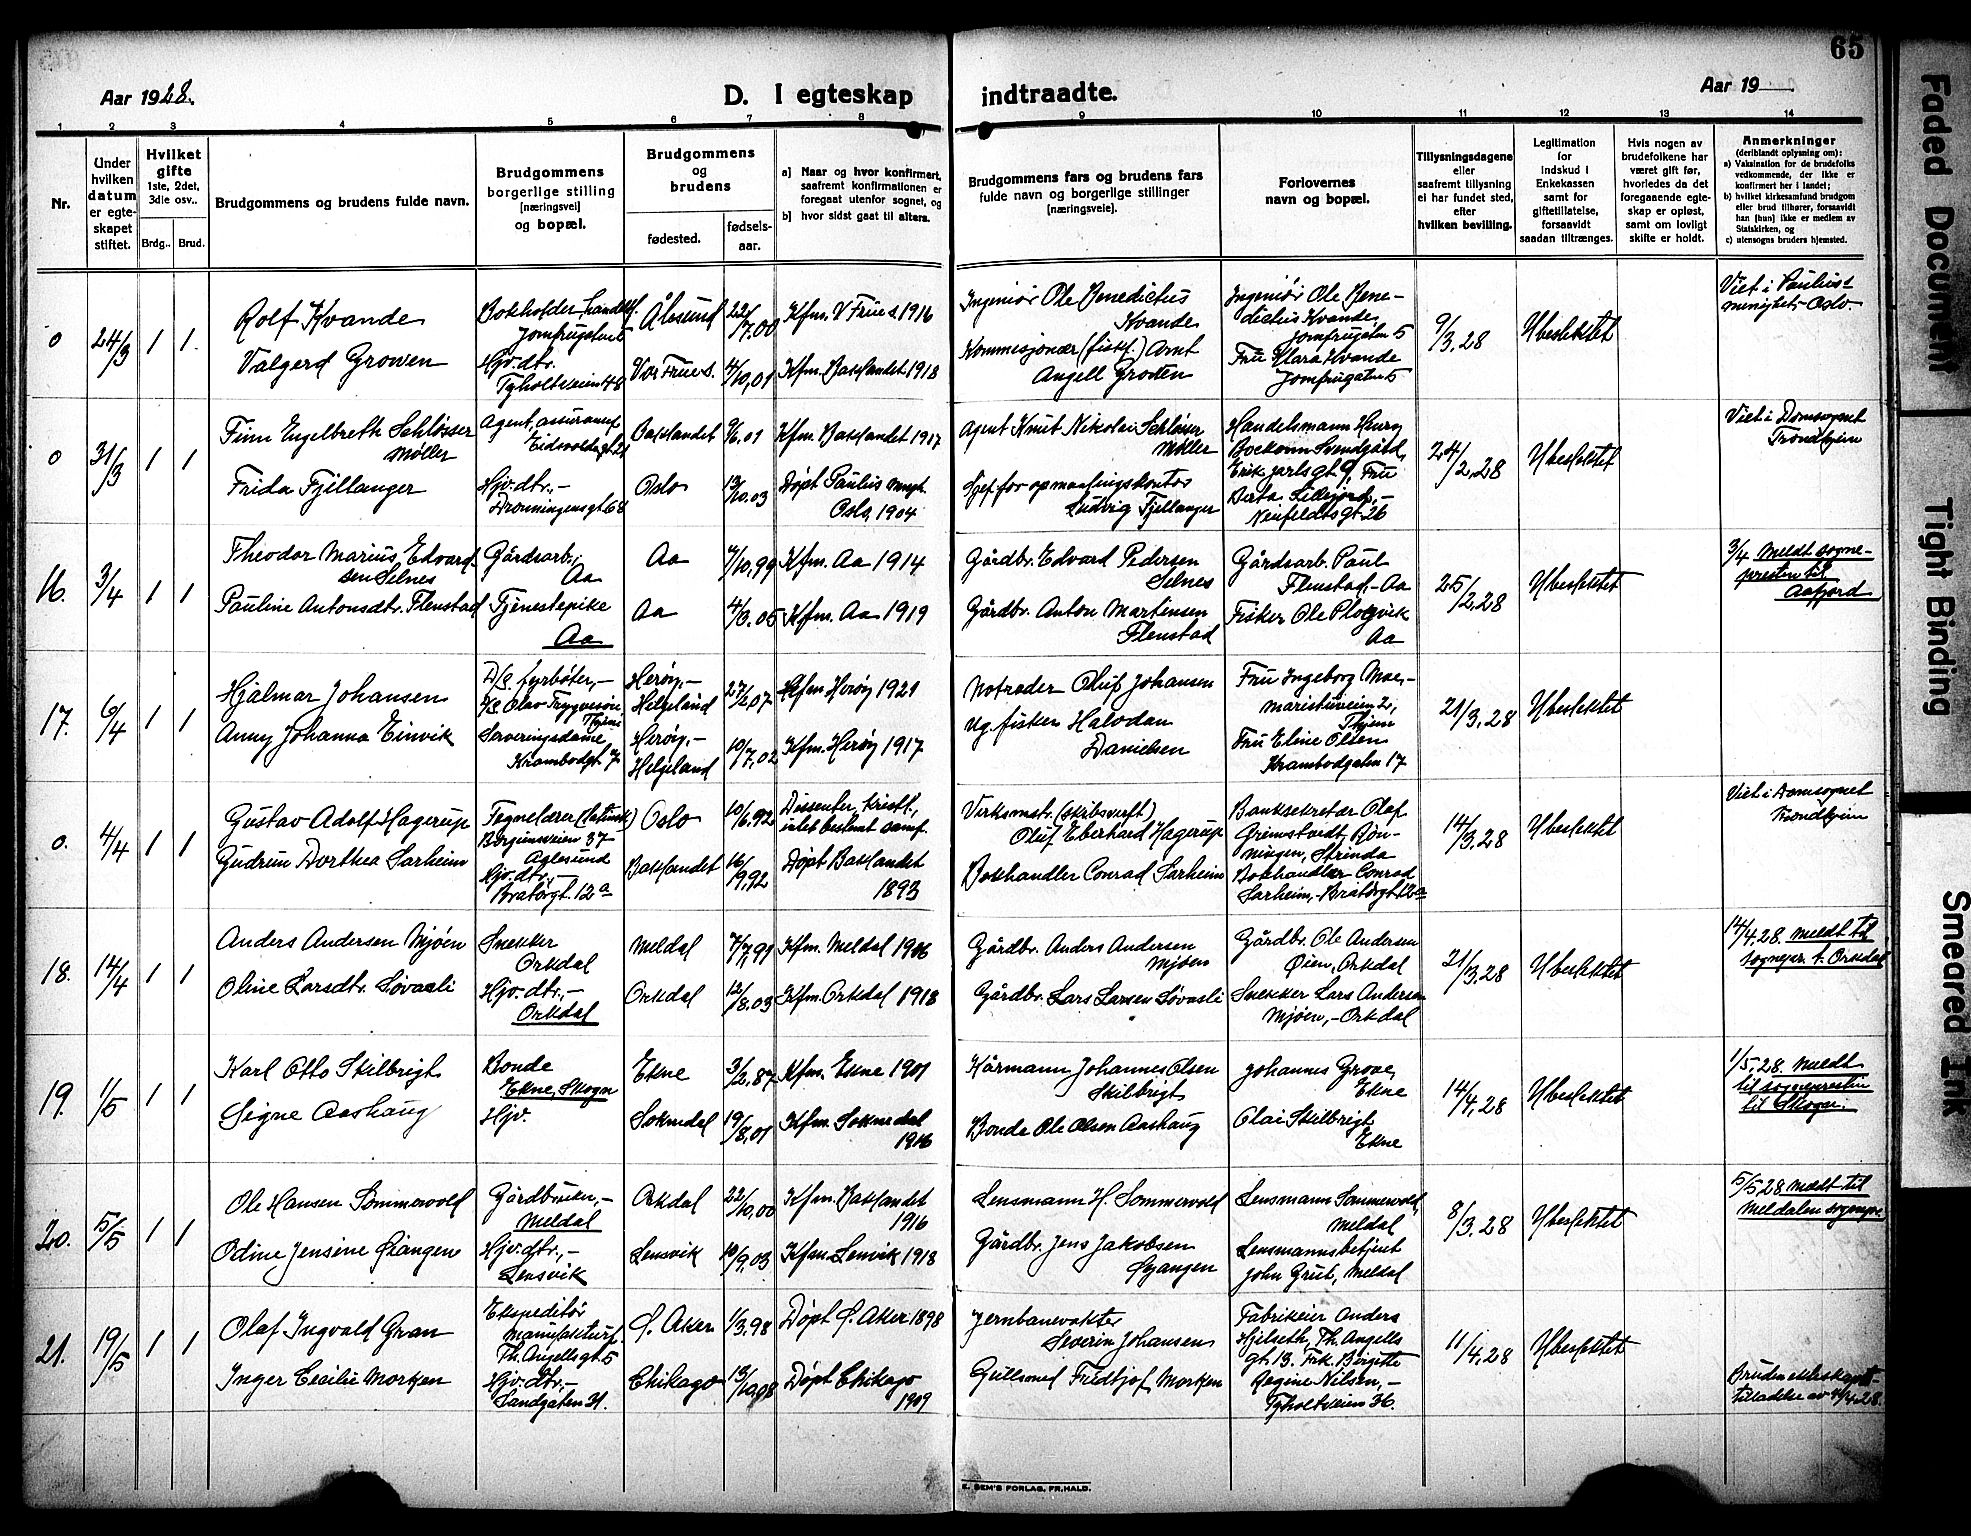 65
Aar 1928.
D. I egteskap indtraadte.
Aar 19
1 2 3 4 5 6 7 8 9 10 11 12 13 14
Nr.
Under hvilken datum er egte-skapet stiftet.
Hvilket gifte 1ste, 2det, 3die osv..
Brdg.. Brud.
Brudgommens og brudens fulde navn.
Brudgommens borgerlige stilling (næringsvei) og bopæl.
Brudgommens og brudens
fødested.
fødsels-aar.
a) Naar og hvor konfirmert, saafremt konfirmationen er foregaat utenfor sognet, og
b) hvor sidst gaat til alters.
Brudgommens fars og brudens fars fulde navn og borgerlige stillinger (næringsveie).
Forlovernes navn og bopæl.
Tillysningsdagene eller saafremt tillysning ei har fundet sted, efter hvilken bevilling.
Legitimation for indskud i Enkekassen samt for giftetillatelse, forsaavidt saadan tiltrænges.
Hvis nogen av brudefolkene har været gift før, hvorledes da det foregaaende egte-skap er opløst, samt om lovligt skifte er holdt.
Anmerkninger (deriblandt oplysning om):
a) Vaksination for de brudefolks vedkommende, der ikke er konfirmert her i landet;
b) hvilket kirkesamfund brudgom eller brud tilhører, forsaavidt han (hun) ikke er medlem av Statskirken, og
c) utensogns bruders hjemsted.
0 24/3 1 1.
Rolf Kvande
Bokholder
Jomfrugaten 5
Ålesund
22/7.00
Kfm. V Frue s. 1916
Ingeniør Ole Benedictus
Kvande
Ingeniør Ole Bene-
dictus Kvande,
Jomfrugatn 5
9/3.28
Ubeslektet
Viet i Paulus
menighet-Oslo.
Valgerd Growen
Hjv.dtr.
Tyholtveien 48
Vor Frue s.
4/10.01
Kfm. Baklandet 1918
Kommisjonær (fisk.) Arnt
Angell Groven
Fru Klara Kvande
Jomfrugatn 5
0 31/3 1 1
Finn Engelbreth Schlösser
Møller
Agent, assuranse
Eidsvoldsgt 21
Baklandet
9/6.01
Kfm. Baklandet 1917
Agent Knut Nikolai Schlösser
Møller
Handelsmann Henry
Erik jarlsgt 9, Fru
24/2.28
Ubeslektet
Viet i Domsognet
Trondhjem
Frida Fjellanger
Hjv.dtr.,-
Dronningensgt 68
Oslo
13/10.03
Døpt Paulus mngh.
Oslo, 1904
Sjef for opmaalingskontor
Ludvig Fjellanger
Neufeldtsgt. 26
16. 3/4 1 1
Theodor Marius Edvard-
sen Selnes
Gårdsarb.,
Aa
Aa
7/10.99
Kfm. Aa 1914
Gårdbr. Edvard Pedersen
Selnes
Gårdsarb. Paul
Flenstad,-Aa
25/2.28
Ubeslektet
3/4 Meldt sogne-
presten til
Aafjord
Pauline Antonsdtr. Flenstad
Tjenestepike
Aa
Aa
4/3.05
Kfm. Aa 1919
Gårdbr. Anton Martinsen
Flenstad
Fisker Ole Plogvik
Aa
17. 6/4 1 1
Hjalmar Johansen
D/s. fyrbøter,-
D/s. Olav Trygvesøn
Thjem
Herøy,-
Helgeland
27/2.07
Kfm Herøy 1921
Notreder Oluf Johansen
Fru Ingeborg Moe,-
Thjem
21/3.28
Ubeslektet
Anny Johanna Einvik
Serveringsdame
Krambodgt 7
Herøy,-
Helgeland
10/7.02
Kfm. Herøy 1917
Ug. fisker Halvdan
Danielsen
Fru Eline Olsen
Krambodgaten 17
0. 4/4 1 1
Gustav Adolf Hagerup
Fagnelærer
37
Oslo
10/6.92
Dissenter, kristl.,
intet bestemt samf.
Virksmstr. (skibsverft)
Oluf Eberhard Hagerup
Banksekretær Olaf
Grimstvedt, Røn-
ningen, Strinda
14/3.28
Ubeslektet
Viet i Domsognet
Trondhjem
Gudrun Dorthea Sarheim
Hjv.dtr.,-
Bratørgt. 12a
Baklandet
16/9.92
Døpt Baklandet
1893
Bokhandler Conrad Sarheim
Bokhandler Conrad
Sarheim,-Bratørgt 12a
18. 14/4 1 1
Anders Andersen Mjøen
Snekker
Orkdal
Meldal
7/7.91
Kfm. Meldal 1906
Gårdbr. Anders Andersen
Mjøen
Gårdbr. Ole Andersen
Øien, Orkdal
21/3.28
Ubeslektet
14/4.28. Meldt til
sognepr. t. Orkdal
Oline Larsdtr. Løvaasli
Hjv.dtr.,-
Orkdal
Orkdal
12/8.03
Kfm. Orkdal 1918
Gårdbr. Lars Larsen Løvasli
Snekker Lars Andersen
Mjøen,-Orkdal
19. 1/5 1 1
Karl Otto Skilbrigt
Bonde
Ekne, Skogn
Ekne
3/2.87
Kfm. Ekne 1901
Kårmann Johannes Olsen
Skilbrigt
Johannes Grove,
Ekne
14/4.28
Ubeslektet
1/5.28. Meldt
til sognepresten
til Skogn.
Signe Aashaug
Hjv.
Soknedal
19/8.01
Kfm. Soknedal
1916
Bonde Ole Olsen Aashaug
Olai Skilbrigt
Ekne
20. 5/5 1 1
Ole Hansen Sommervold
Gårdbruker,-
Meldal
Orkdal
22/10.00
Kfm. Baklandet
1916
Lensmann H. Sommervold
Lensmann Sommervold,
Meldal
8/3.28
Ubeslektet
5/5 28 meldt til
Meldalen sognepr.
Odine Jensine Gjangen
Hjv.dtr.,-
Lensvik
Lensvik
10/9.03
Kfm Lensvik 1918
Gårdbr. Jens Jakobsen
Gjangen
Lensmannsbetjent
John Grut, Meldal
21. 19/5 1 1
Olaf Ingvald Gran
Ekspeditør
manufakturf.
Th. Angellsgt. 5
Ø. Aker
1/3.98
Døpt Ø. Aker 1898
Jernbanevokter
Severin Johansen
Fabrikeier Anders
Hjelseth, Th. Angells
gt. 13. Frk. Birgitte
11/4.28
Ubeslektet
Inger Cecilie Morken
Hjv.dtr.-
Sandgaten 31.
Chikago
13/10.08
Døpt Chikago
1909
Gullsmed Fridtjof Morken
Regine Nilsen,-
Tyholtveien 36.
Brudens
tilladelse av
E. SEM'S FORLAG, FR.HALD.
Faded Document
Tight Binding
Smeared Ink